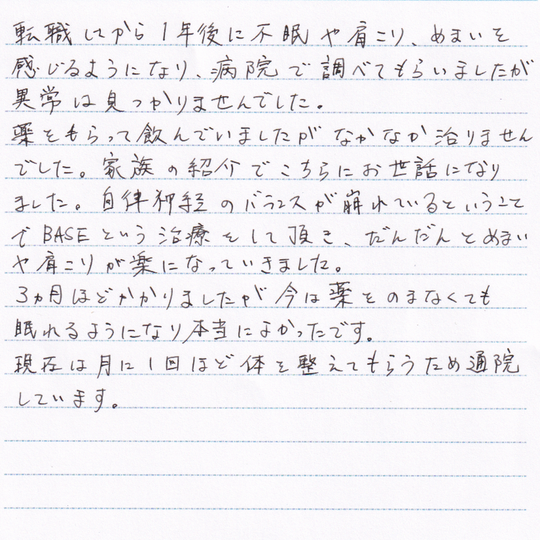 転職してから1年後に不眠や肩こり、めまいを
感じるようになり、病院で調べてもらいましたが
異常は見つかりませんでした。
薬をもらって飲んでいましたがなかなか治りません
でした。家族の紹介でこちらにお世話になり
ました。自律神経のバランスが崩れているということ
でBASEという治療をして頂き、だんだんとめまい
や肩こりが楽になっていきました。
3ヵ月ほどかかりましたが今は薬をのまなくても
眠れるようになり本当によかったです。
現在は月に1回ほど体を整えてもらうため通院
しています。